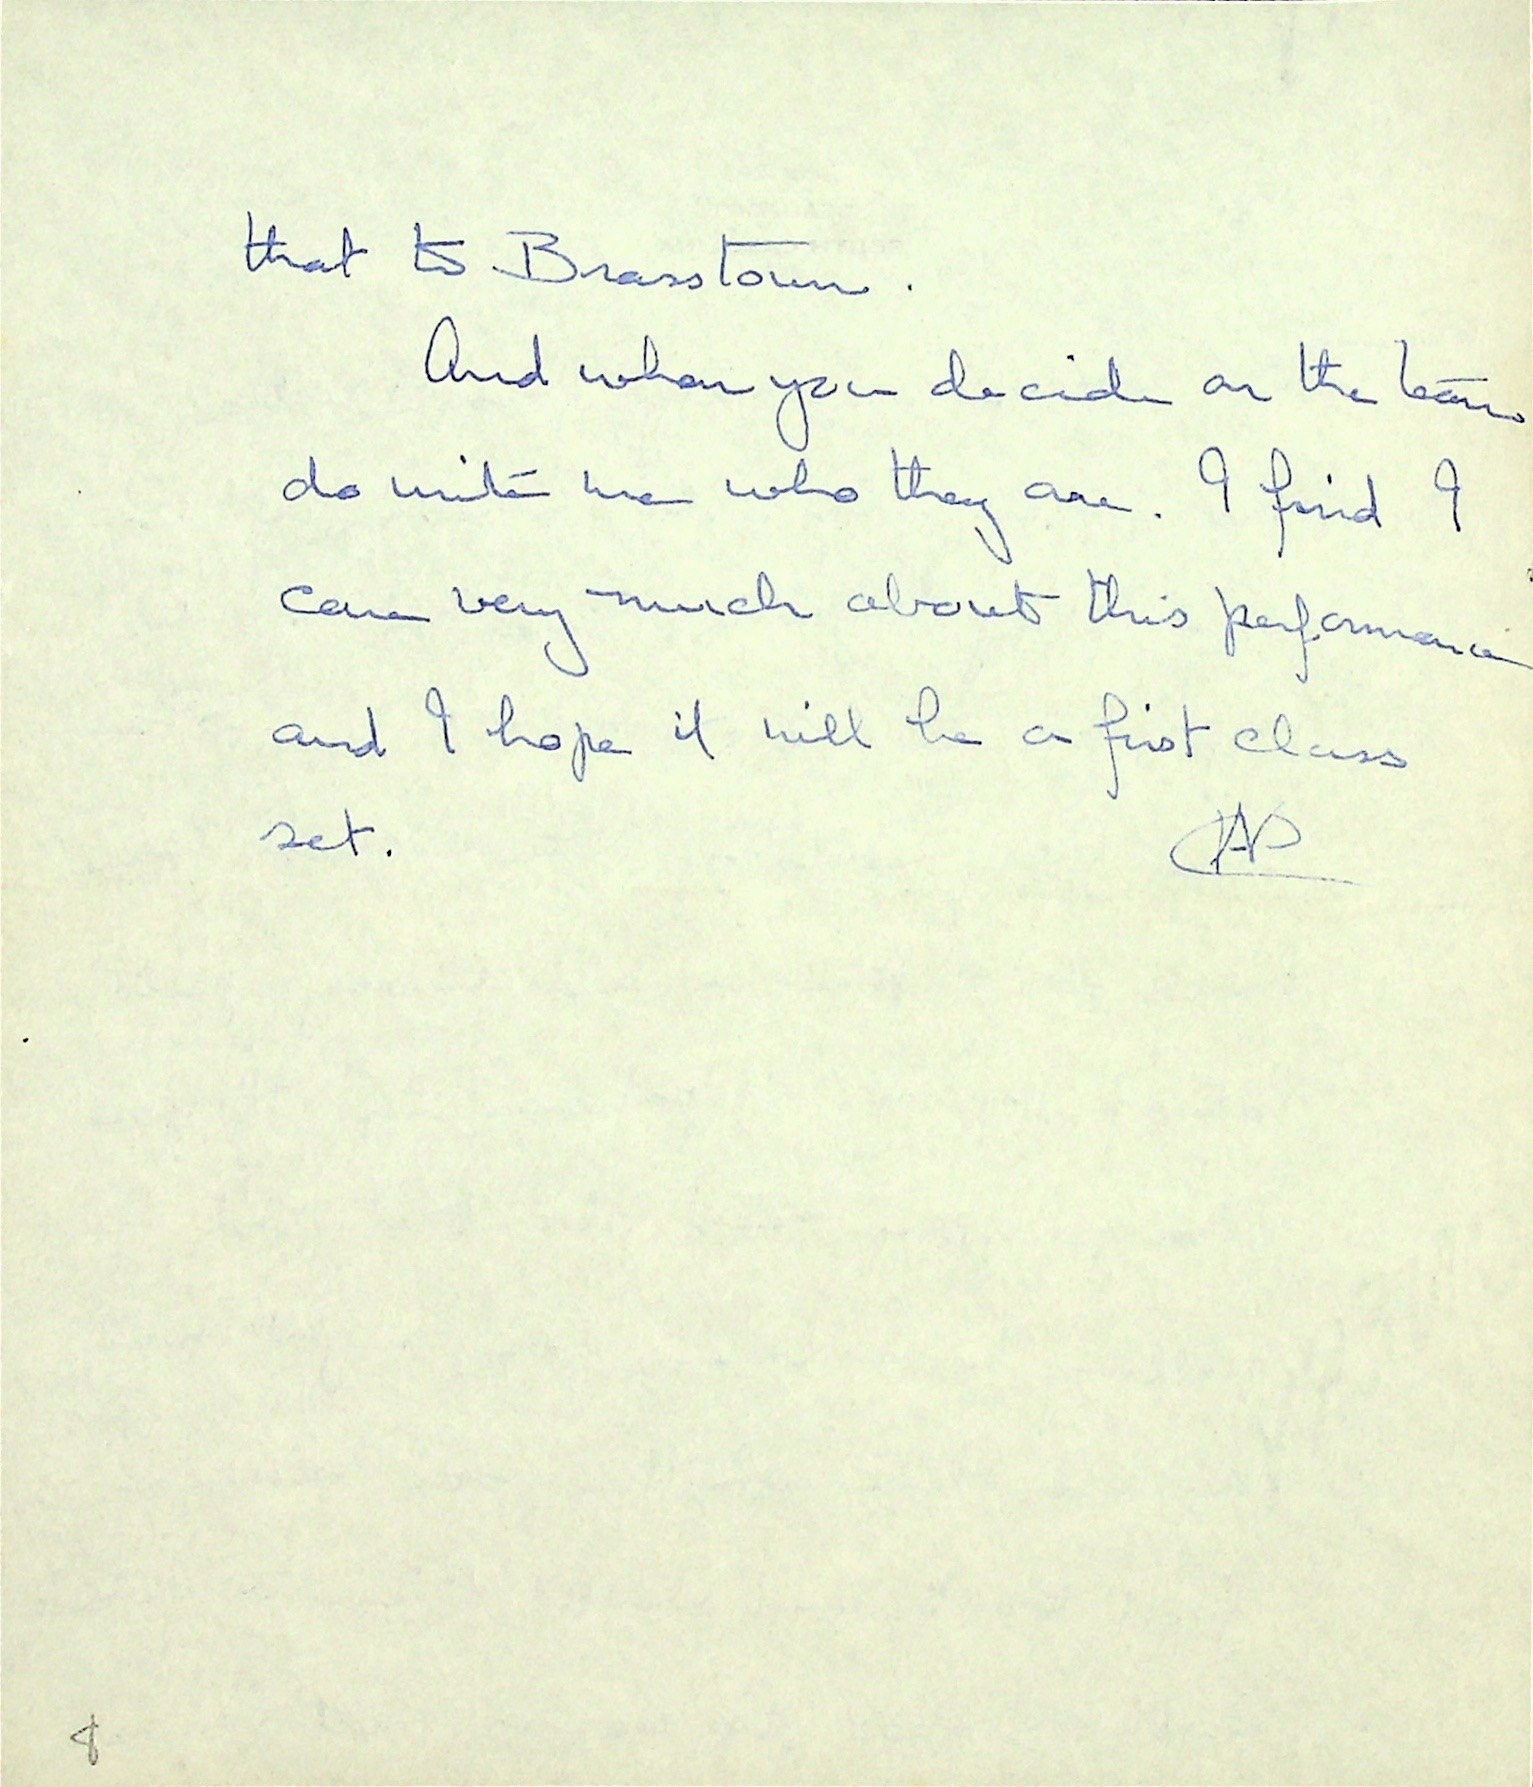 that to Brasstown.
And when you decide on the team
do write me who they are. I find I
care very much about this performance
and I hope it will be a first class
set.